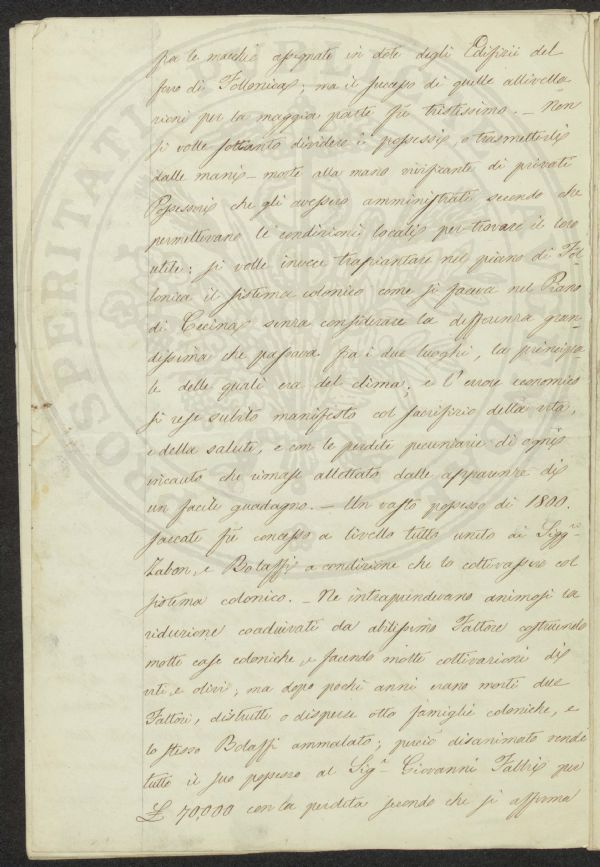 fra le macchie assegnate in dote degli Edifizii del
ferro di Follonica; ma il successo di quelle allivella-
zioni per la maggia parte fù tristissimo. - Non
si volle soltanto dividere i possessi, o trasmetterli
dalle mani-morte alla mano vivificante di privati
Possessori che gli avessero amministrati secondo che
permettevano le condizioni locali per trovare il loro
utile; si volle invece trapiantare nel piano di Fol-
lonica il sistema colonico come si faceva nel Piano
di Cecina senza considerare la differenza gran-
dissima che passava fra i due luoghi, la principa
le delle quali era del clima; e l'errore economico
si rese subito manifesto col sacrifizio della vita,
e della salute, e con le perdite pecuniarie di ogni
incauto che rimase allettato dalle apparenze di
un facile guadagno. - Un vasto possesso di 1800.
saccate fù concesso a livello tutto unito ai Sigg.ri
Zabon, e Bolaffi a condizione che lo coltivassero col
sistema colonico. - Ne intraprendevano animosi la
riduzione coadiuvati da abilissimo Fattore costruendo
molte case coloniche, e facendo molte coltivazioni di
viti, e olivi; ma dopo pochi anni erano morti due
Fattori, distrutte o disperse otto famiglie coloniche, e
lo stesso Bolaffi ammalato; perciò disanimato vende
tutto il suo possesso al Sig.r Giovanni Fabbri per
£ 70,000 con la perdita secondo che si afferma
PROSPERITATI